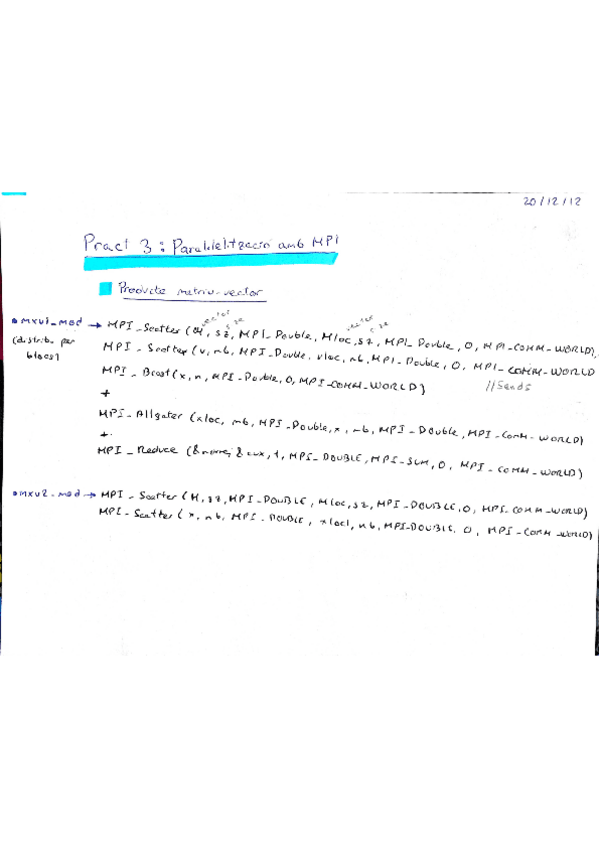 20/12/12
Pract 3: Paral·lelització amb MPI
Producte matriu-vector
vector size vector size
mxv1_mod → MPI_Scatter (M, sz, MPI_Double, Mloc, sz, MPI_Double, 0, MPI_COMM_WORLD),
(distrib. per MPI_Scatter (v, nb, MPI_Double, vloc, nb, MPI_Double, 0, MPI_COMM_WORLD
blocs) MPI_Bcast (x, n, MPI_Double, 0, MPI_COMM_WORLD) //Sends
+
MPI_Allgater (xloc, nb, MPI_Double, x, nb, MPI_Double, MPI_Comm_WORLD)
+
MPI_Reduce (&norm, &aux, 1, MPI_DOUBLE, MPI_SUM, 0, MPI_COMM_WORLD)
mxv2_mod → MPI_Scatter (M, sz, MPI_DOUBLE, Mloc, sz, MPI_DOUBLE, 0, MPI_COMM_WORLD)
MPI_Scatter (x, nb, MPI_DOUBLE, xlocl, nb, MPI_DOUBLE, 0, MPI_COMM_WORLD)